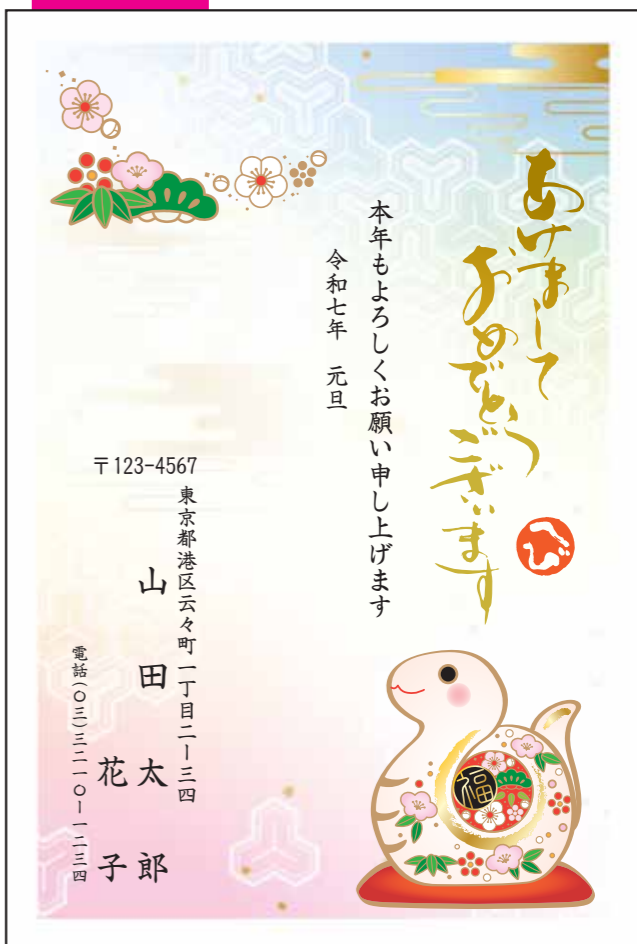 あけまして
おめでとう
ございます
へび
本年もよろしくお願い申し上げます
令和七年　元旦
〒123-4567
東京都港区云々町一丁目二ー三四
山田太郎
花子
電話(〇三)三二一〇ー一二三四
福